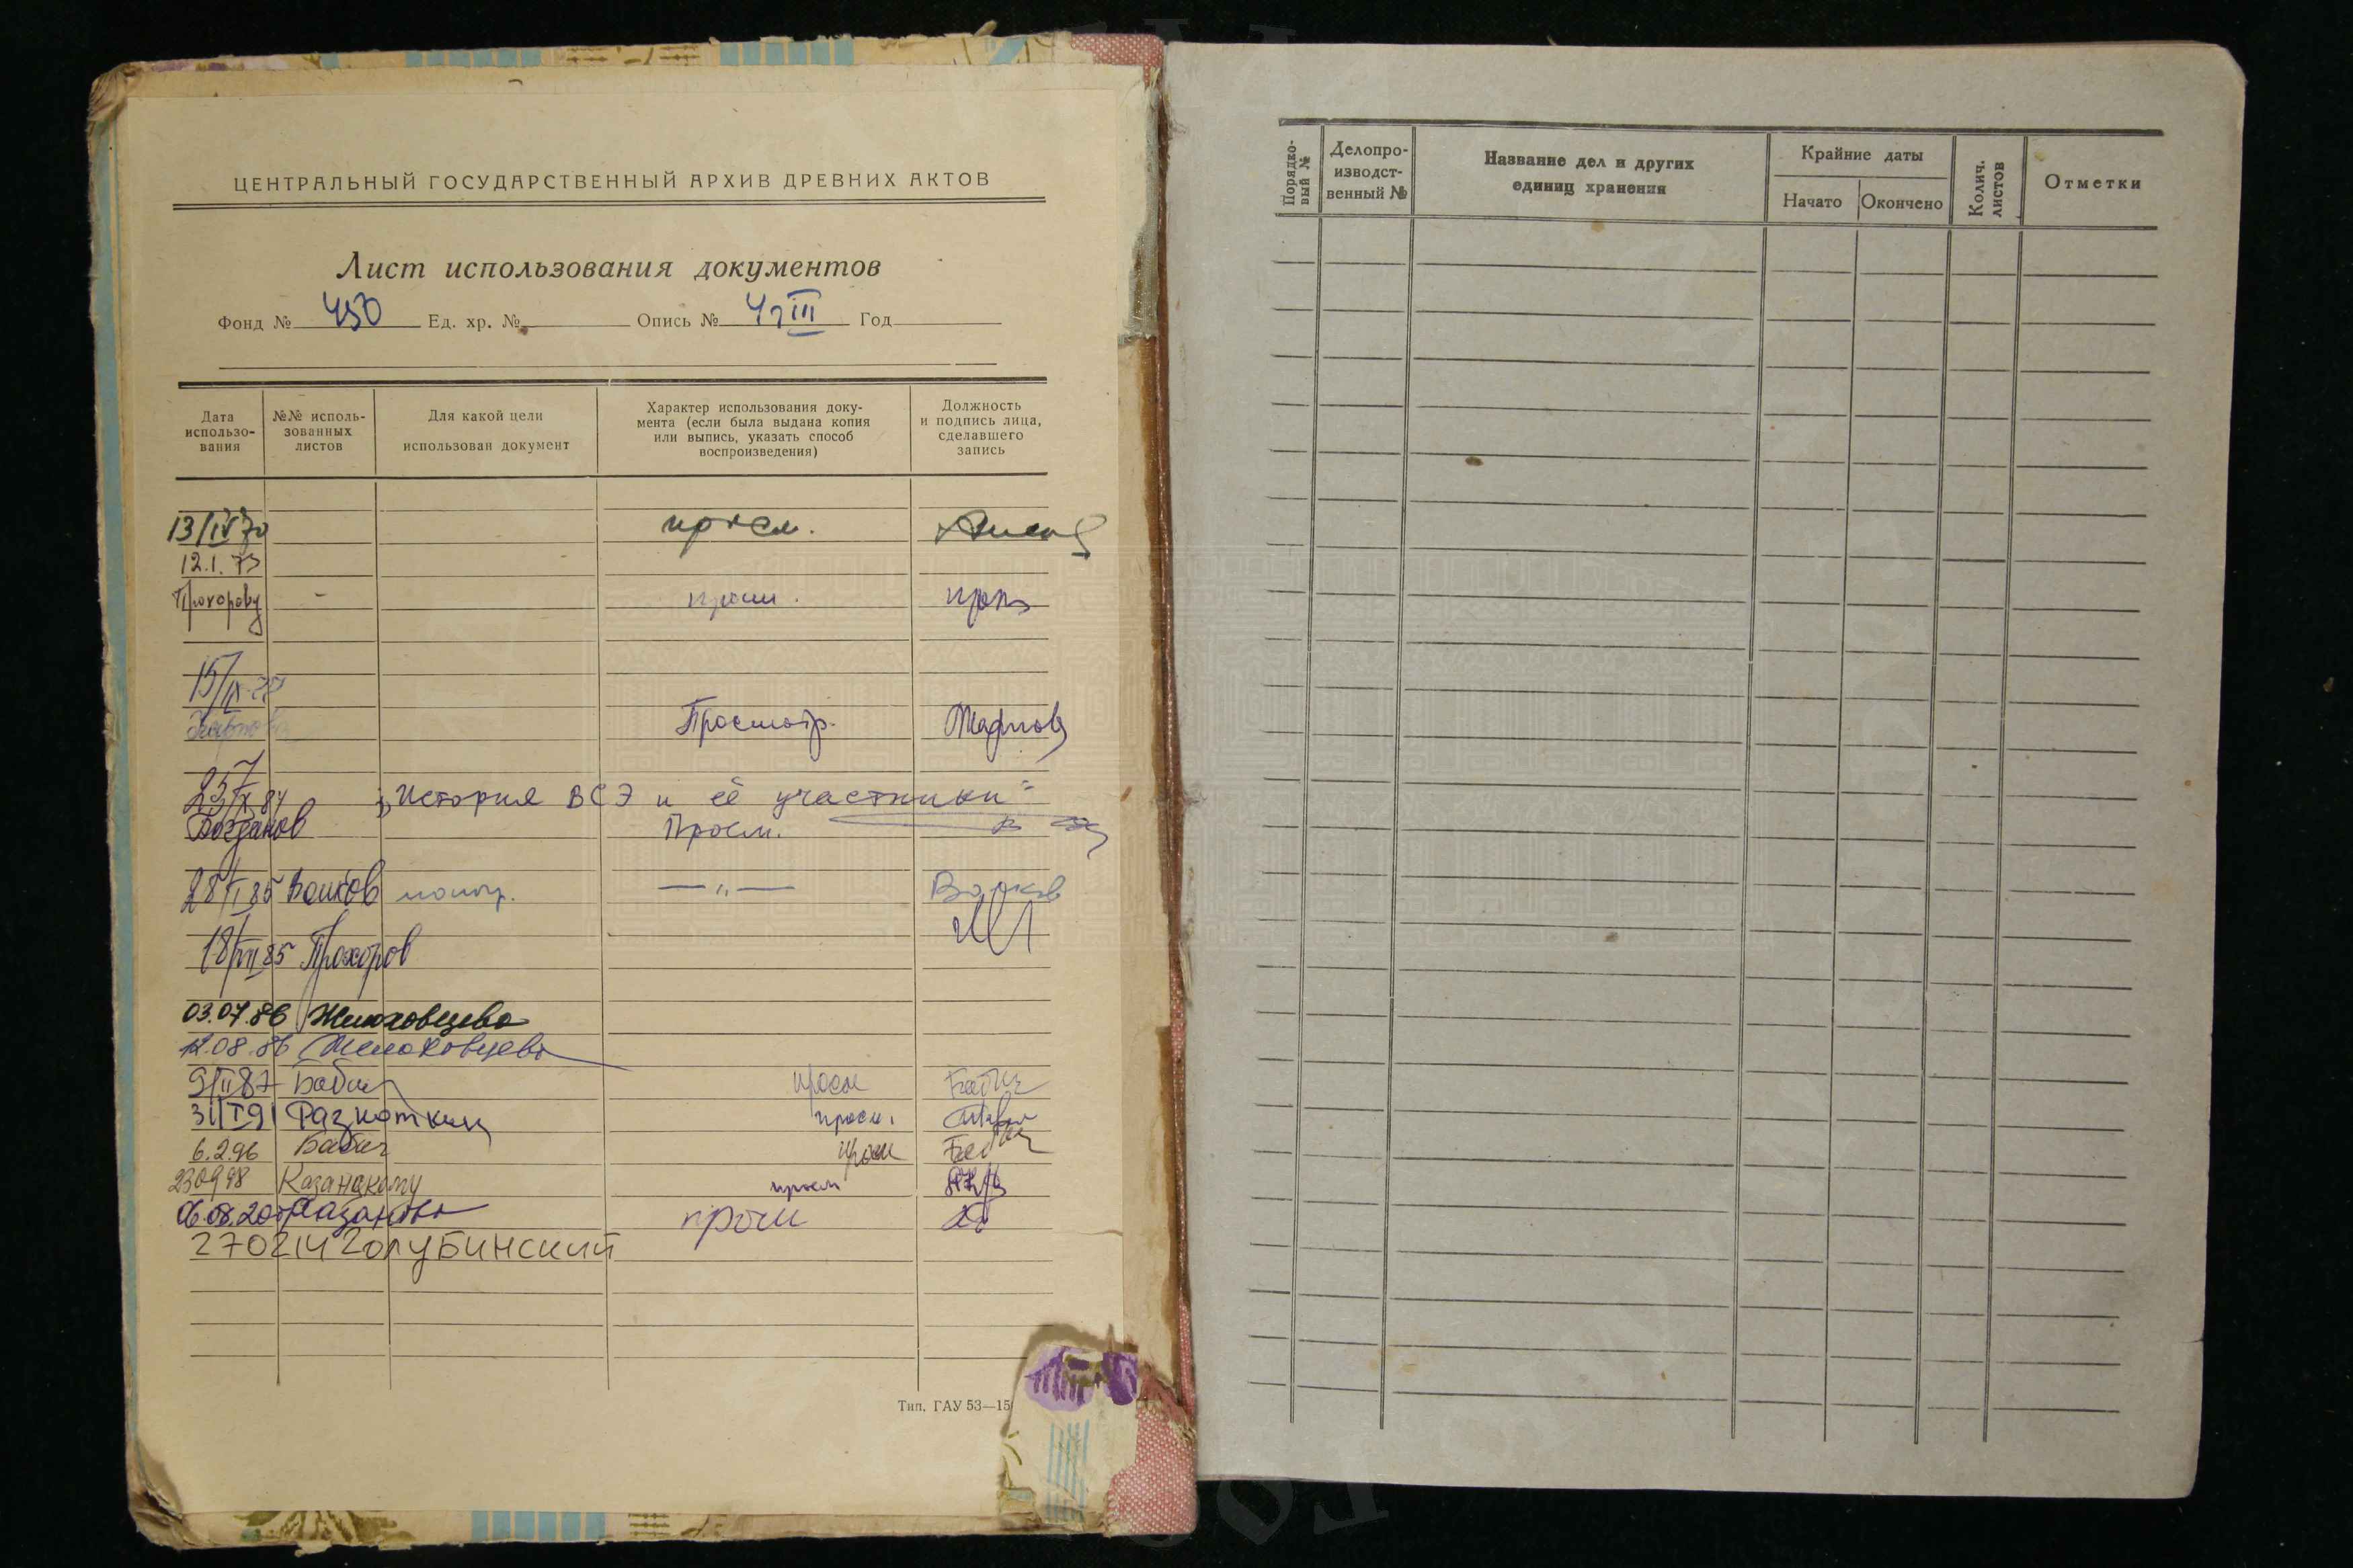 ЦЕНТРАЛЬНЫЙ ГОСУДАРСТВЕННЫЙ АРХИВ ДРЕВНИХ АКТОВ
Лист использования документов
Фонд № 450 Ед. хр. № Опись № Год
Дата использо-вания
№№ исполь-зованных листов
Для какой цели использован документ
Характер использования доку-мента (если была выдана копия или выпись, указать способ воспроизведения)
Должность и подпись лица, сделавшего запись
13/IV 70 просм.
12.1.73
Прохорову - просм.
Просмотр.
„История ВСЭ и её участники"
Богданов Просм.
28/I 85 Волков — „ — Волков
18/VII 85 Прохоров
03.07.86 Желоховцева
12.08.86 Желоховцева
9/II 87 Бабич просм Бабич
31/I 91 просм.
6.2.96 Бабич просм Бабич
230998 Казанскому просм
просм
270214 Голубинский
Тип. ГАУ 53—15
Порядко-вый №
Делопро-изводст-венный №
Название дел и других единиц хранения
Крайние даты
Начато Окончено
Колич. листов
Отметки